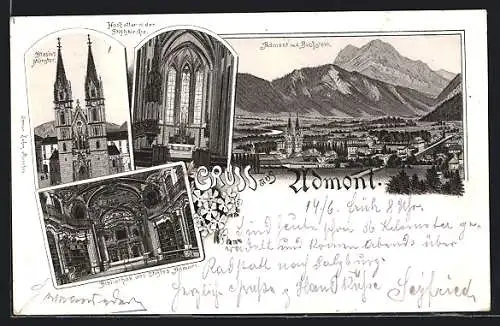 Stains Münster.
Hochaltar in der Stiftskirche.
Admont mit Buchstein.
Bibliothek des Stiftes Admont.
Gruss aus Admont.
14/6. früh 8 Uhr.
Sind heute schon 26 Kilometer ge-
radelt und kommen Abends über
Radstatt nach Salzburg.
Herzliche Grüße & Handküsse
Seyfried